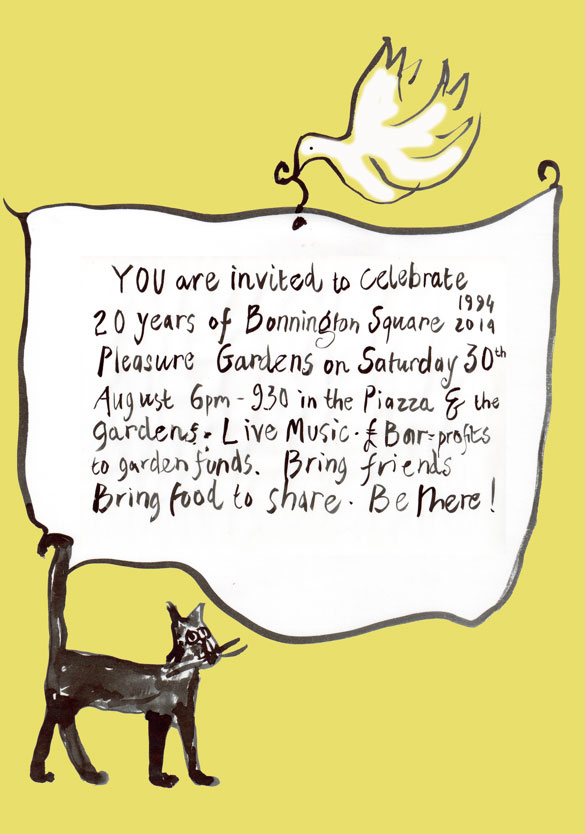 YOU are invited to celebrate
20 years of Bonnington Square 1994 2014
Pleasure Gardens on Saturday 30th
August 6pm - 930 in the Piazza & the
gardens. Live Music. £ Bar = profits
to garden funds. Bring friends
Bring food to share. Be there!